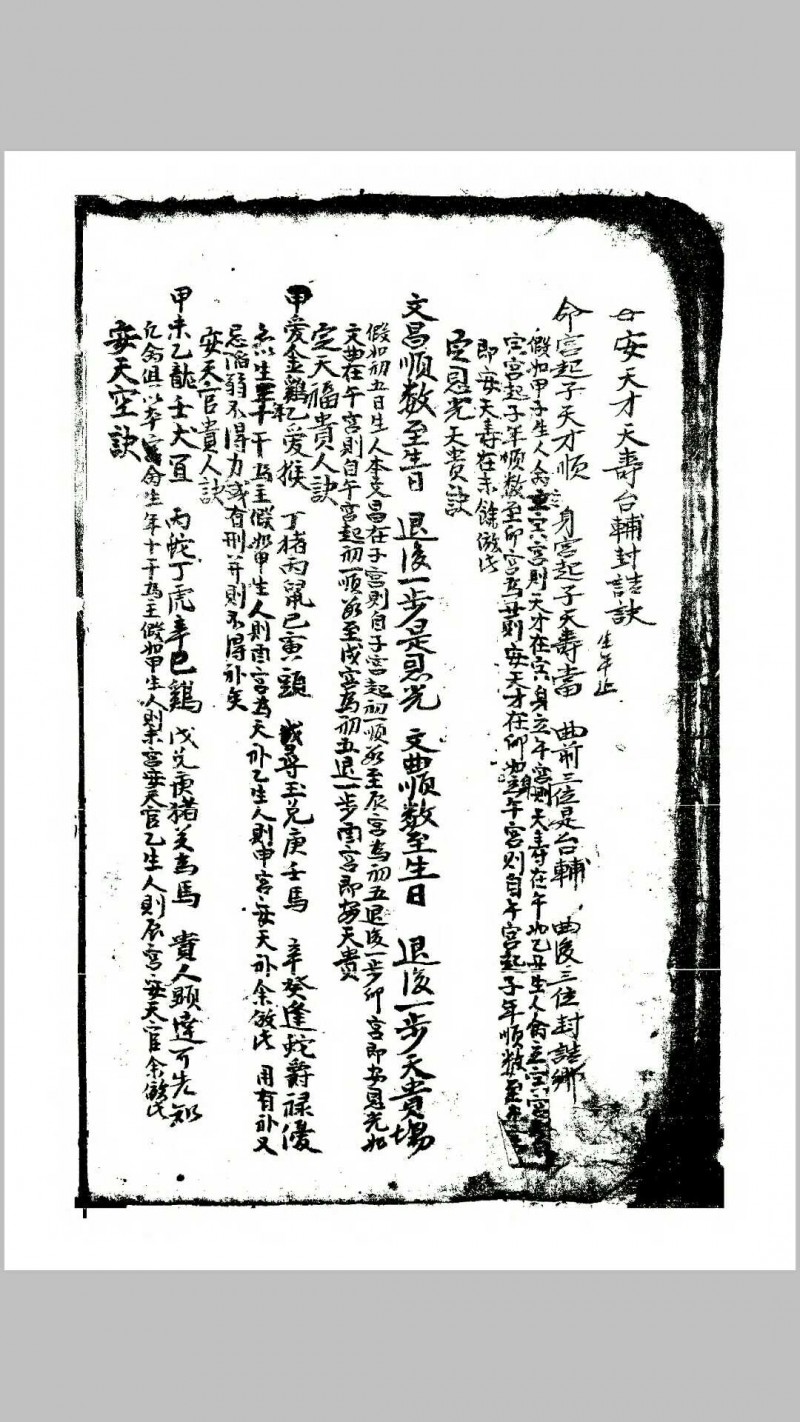 安天才天壽台輔封誥訣
生年止
命宮起子天才順 身宮起子天壽當 曲前三位是台輔 曲後三位封誥鄉
假如甲子生人命立寅宮則天才在寅身立午宮則天壽在午如乙丑生人命立寅宮
寅宮起子年順数至卯宮為丑則安天才在卯如身立午宮則自午宮起子年順数至
即安天壽在未餘倣此
定恩光天貴訣
文昌順数至生日 退後一步是恩光 文曲順数至生日 退後一步天貴場
假如初五日生人本文昌在子宮則自子宮起初一順数至辰宮為初五退後一步卯宮即安恩光如
文曲在午宮則自午宮起初一順数至戌宮為初五退一步酉宮即安天貴
定天福貴人訣
甲愛金鷄乙愛猴 丁猪丙鼠己寅頭 戊尋玉兔庚壬馬 辛癸逢蛇爵禄優
亦以生年十干為主假如甲生人則酉宮為天卦乙生人則申宮安天卦余倣此 用有卦又
忌陷弱不得力或有刑并則不得卦矣
安天官貴人訣
甲未乙龍壬犬宜 丙蛇丁虎辛巳鷄 戊兔庚猪癸馬 貴人顕達可先知
凡命俱以本命生年十干為主假如甲生人則未宮安天官乙生人則辰宮安天官余倣此
安天空訣